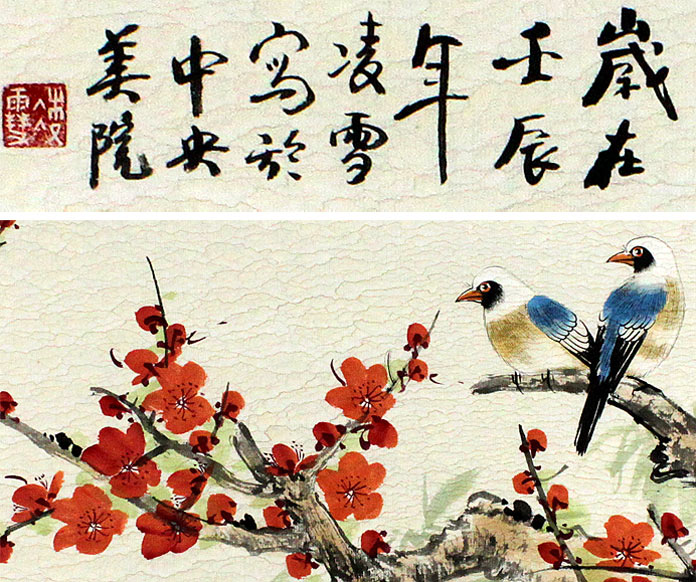 歲在
壬辰
年
凌雪
寫於
中央
美院